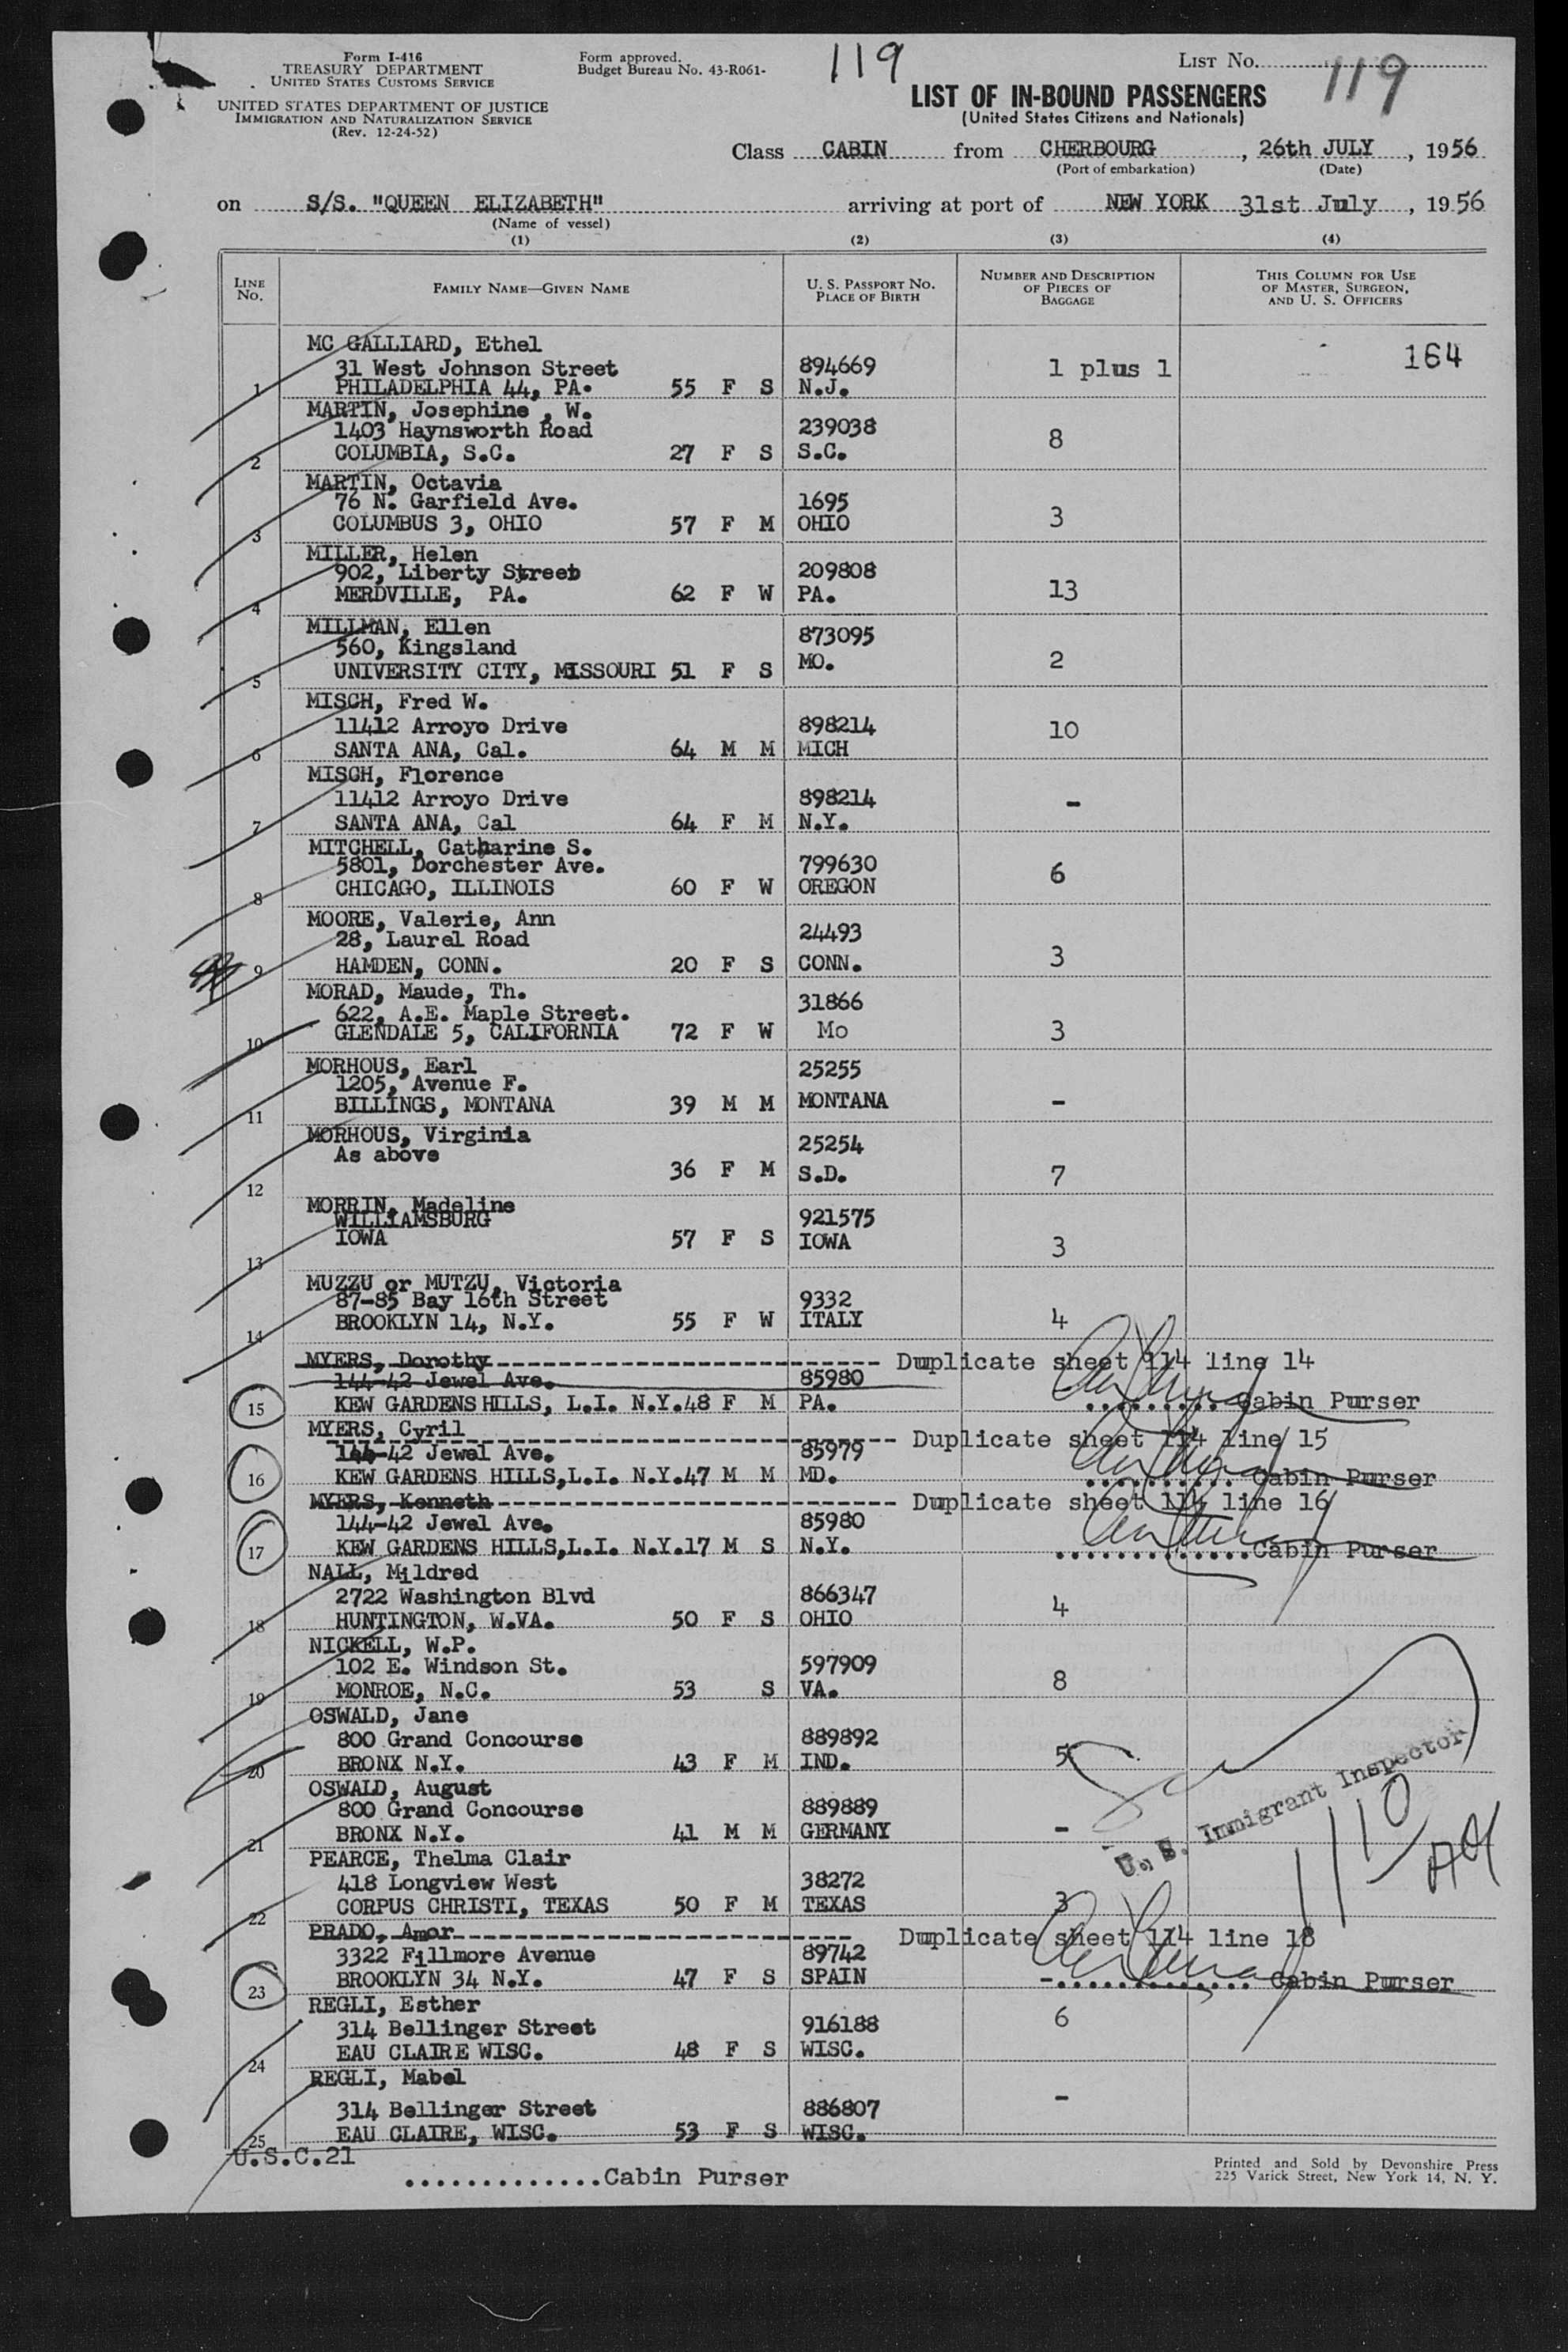 Form I-416
TREASURY DEPARTMENT
UNITED STATES CUSTOMS SERVICE
UNITED STATES DEPARTMENT OF JUSTICE
IMMIGRATION AND NATURALIZATION SERVICE
(Rev. 12-24-52)
Form approved.
Budget Bureau No. 43-R061-
119
LIST NO. 119
LIST OF IN-BOUND PASSENGERS
(United States Citizens and Nationals)
Class CABIN from CHERBOURG, 26th JULY, 1956
(Port of embarkation) (Date)
on S/S. "QUEEN ELIZABETH" arriving at port of NEW YORK 31st July, 1956
(Name of vessel)
(1) (2) (3) (4)
LINE No. FAMILY NAME—GIVEN NAME U. S. PASSPORT NO. PLACE OF BIRTH NUMBER AND DESCRIPTION OF PIECES OF BAGGAGE THIS COLUMN FOR USE OF MASTER, SURGEON, AND U. S. OFFICERS
164
MC GALLIARD, Ethel
31 West Johnson Street 894669 1 plus 1
1 PHILADELPHIA 44, PA. 55 F S N.J.
MARTIN, Josephine , W.
1403 Haynsworth Road 239038 8
2 COLUMBIA, S.C. 27 F S S.C.
MARTIN, Octavia
76 N. Garfield Ave. 1695 3
3 COLUMBUS 3, OHIO 57 F M OHIO
MILLER, Helen
902, Liberty Street 209808 13
4 MERDVILLE, PA. 62 F W PA.
MILLMAN, Ellen
560, Kingsland 873095 2
5 UNIVERSITY CITY, MISSOURI 51 F S MO.
MISCH, Fred W.
11412 Arroyo Drive 898214 10
6 SANTA ANA, Cal. 64 M M MICH
MISCH, Florence
11412 Arroyo Drive 898214 -
7 SANTA ANA, Cal 64 F M N.Y.
MITCHELL, Catharine S.
5801, Dorchester Ave. 799630 6
8 CHICAGO, ILLINOIS 60 F W OREGON
MOORE, Valerie, Ann
28, Laurel Road 24493 3
9 HAMDEN, CONN. 20 F S CONN.
MORAD, Maude, Th.
622, A.E. Maple Street. 31866 3
10 GLENDALE 5, CALIFORNIA 72 F W Mo
MORHOUS, Earl
1205, Avenue F. 25255
11 BILLINGS, MONTANA 39 M M MONTANA -
MORHOUS, Virginia
As above 25254
12 36 F M S.D. 7
MORRIN, Madeline
WILLIAMSBURG 921575
13 IOWA 57 F S IOWA 3
MUZZU or MUTZU, Victoria
87-85 Bay 16th Street 9332 4
14 BROOKLYN 14, N.Y. 55 F W ITALY
MYERS, Dorothy -------------------------- Duplicate sheet 114 line 14
144-42 Jewel Ave. 85980
15 KEW GARDENS HILLS, L.I. N.Y.48 F M PA. .......... Cabin Purser
MYERS, Cyril -------------------------- Duplicate sheet 114 line 15
144-42 Jewel Ave. 85979
16 KEW GARDENS HILLS,L.I. N.Y.47 M M MD. .......... Cabin Purser
MYERS, Kenneth -------------------------- Duplicate sheet 114 line 16
144-42 Jewel Ave. 85980
17 KEW GARDENS HILLS,L.I. N.Y.17 M S N.Y. .............Cabin Purser
NALL, Mildred
2722 Washington Blvd 866347 4
18 HUNTINGTON, W.VA. 50 F S OHIO
NICKELL, W.P.
102 E. Windson St. 597909 8
19 MONROE, N.C. 53 S VA.
OSWALD, Jane
800 Grand Concourse 889892 5
20 BRONX N.Y. 43 F M IND.
OSWALD, August
800 Grand Concourse 889889
21 BRONX N.Y. 41 M M GERMANY -
U. S. Immigrant Inspector
PEARCE, Thelma Clair
418 Longview West 38272
22 CORPUS CHRISTI, TEXAS 50 F M TEXAS 3
PRADO, Amor -------------------------- Duplicate sheet 114 line 18
3322 Fillmore Avenue 89742
23 BROOKLYN 34 N.Y. 47 F S SPAIN -............. Cabin Purser
REGLI, Esther
314 Bellinger Street 916188 6
24 EAU CLAIRE WISC. 48 F S WISC.
REGLI, Mabel
314 Bellinger Street 886807 -
25 EAU CLAIRE, WISC. 53 F S WISC.
U.S.C.21
..............Cabin Purser
Printed and Sold by Devonshire Press
225 Varick Street, New York 14, N. Y.